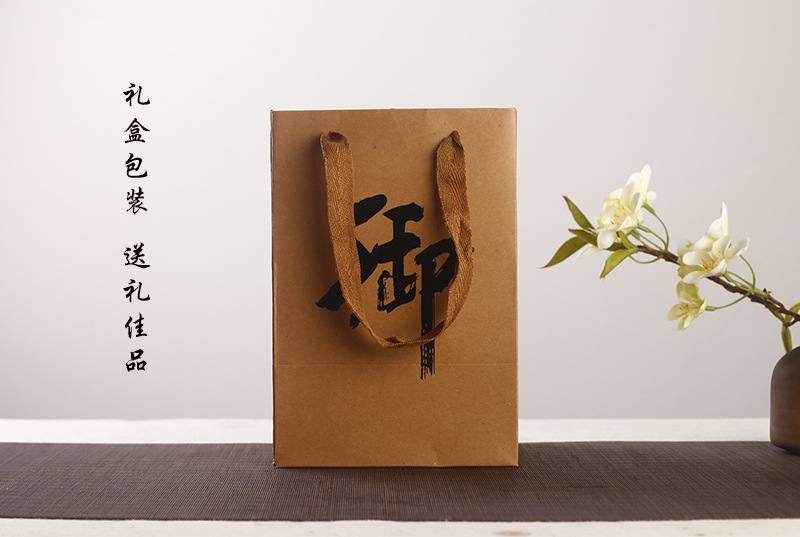 礼盒包装 送礼佳品
御